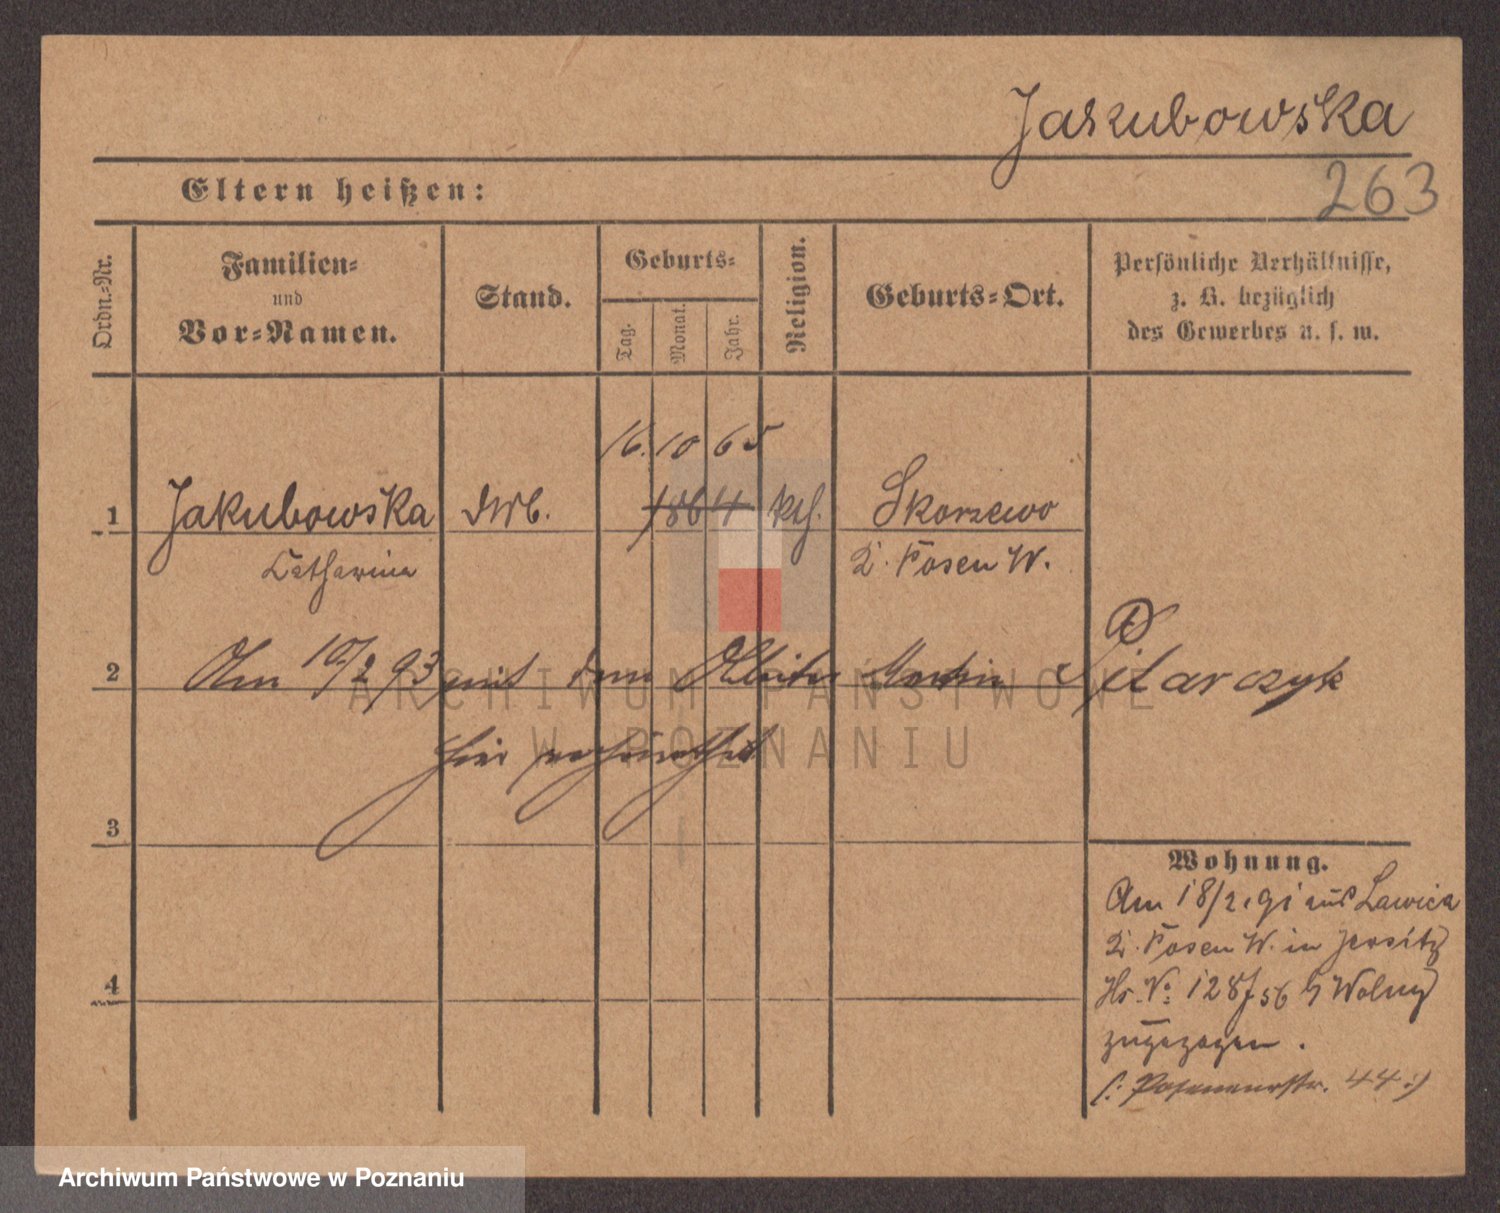 Jakubowska
263
Eltern heißen:
Ordn.-Nr.
Familien-
und
Vor-Namen.
Stand.
Geburts-
Tag.
Monat.
Jahr.
Religion.
Geburts-Ort.
Persönliche Verhältnisse,
z. B. bezüglich
des Gewerbes u. s. w.
16. 10 65
1 Jakubowska 1864 kth. Skorzewo
Catharina K. Posen W.
2 Am 10/2 93 mit dem Arbeiter Martin Pitarczyk
hier verheirathet
3
Wohnung.
Am 18/2. 91 aus Lawica
K. Posen W. in Jersitz
Hs. No: 128/56 b/ Wolny
zugezogen.
(: Posenerstr. 44 :)
4
ARCHIWUM PAŃSTWOWE
W POZNANIU
Archiwum Państwowe w Poznaniu